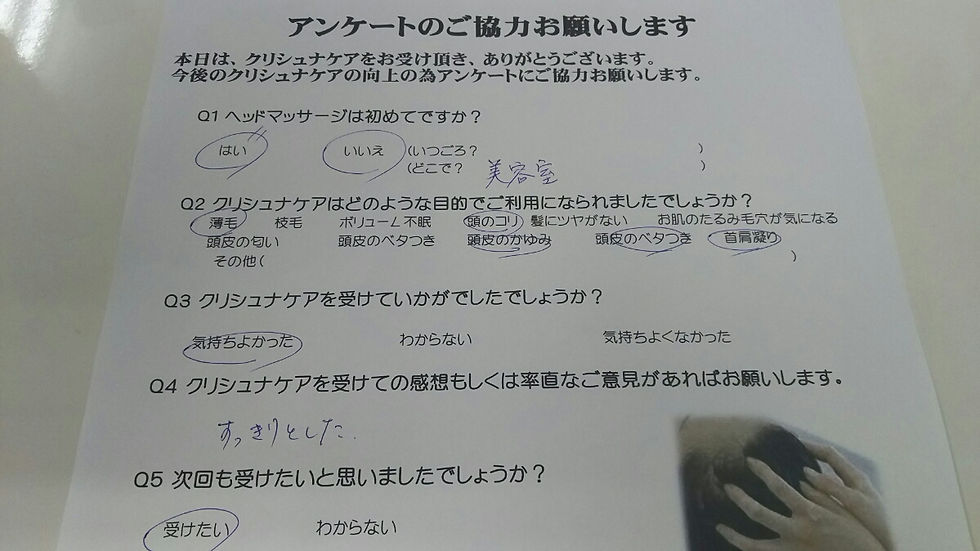 アンケートのご協力お願いします
本日は、クリシュナケアをお受け頂き、ありがとうございます。
今後のクリシュナケアの向上の為アンケートにご協力お願いします。
Q1 ヘッドマッサージは初めてですか？
はい いいえ (いつごろ？ )
(どこで？ 美容室 )
Q2 クリシュナケアはどのような目的でご利用になられましたでしょうか？
薄毛 枝毛 ボリューム 不眠 頭のコリ 髪にツヤがない お肌のたるみ毛穴が気になる
頭皮の匂い 頭皮のベタつき 頭皮のかゆみ 頭皮のベタつき 首肩凝り
その他( )
Q3 クリシュナケアを受けていかがでしたでしょうか？
気持ちよかった わからない 気持ちよくなかった
Q4 クリシュナケアを受けての感想もしくは率直なご意見があればお願いします。
すっきりとした.
Q5 次回も受けたいと思いましたでしょうか？
受けたい わからない